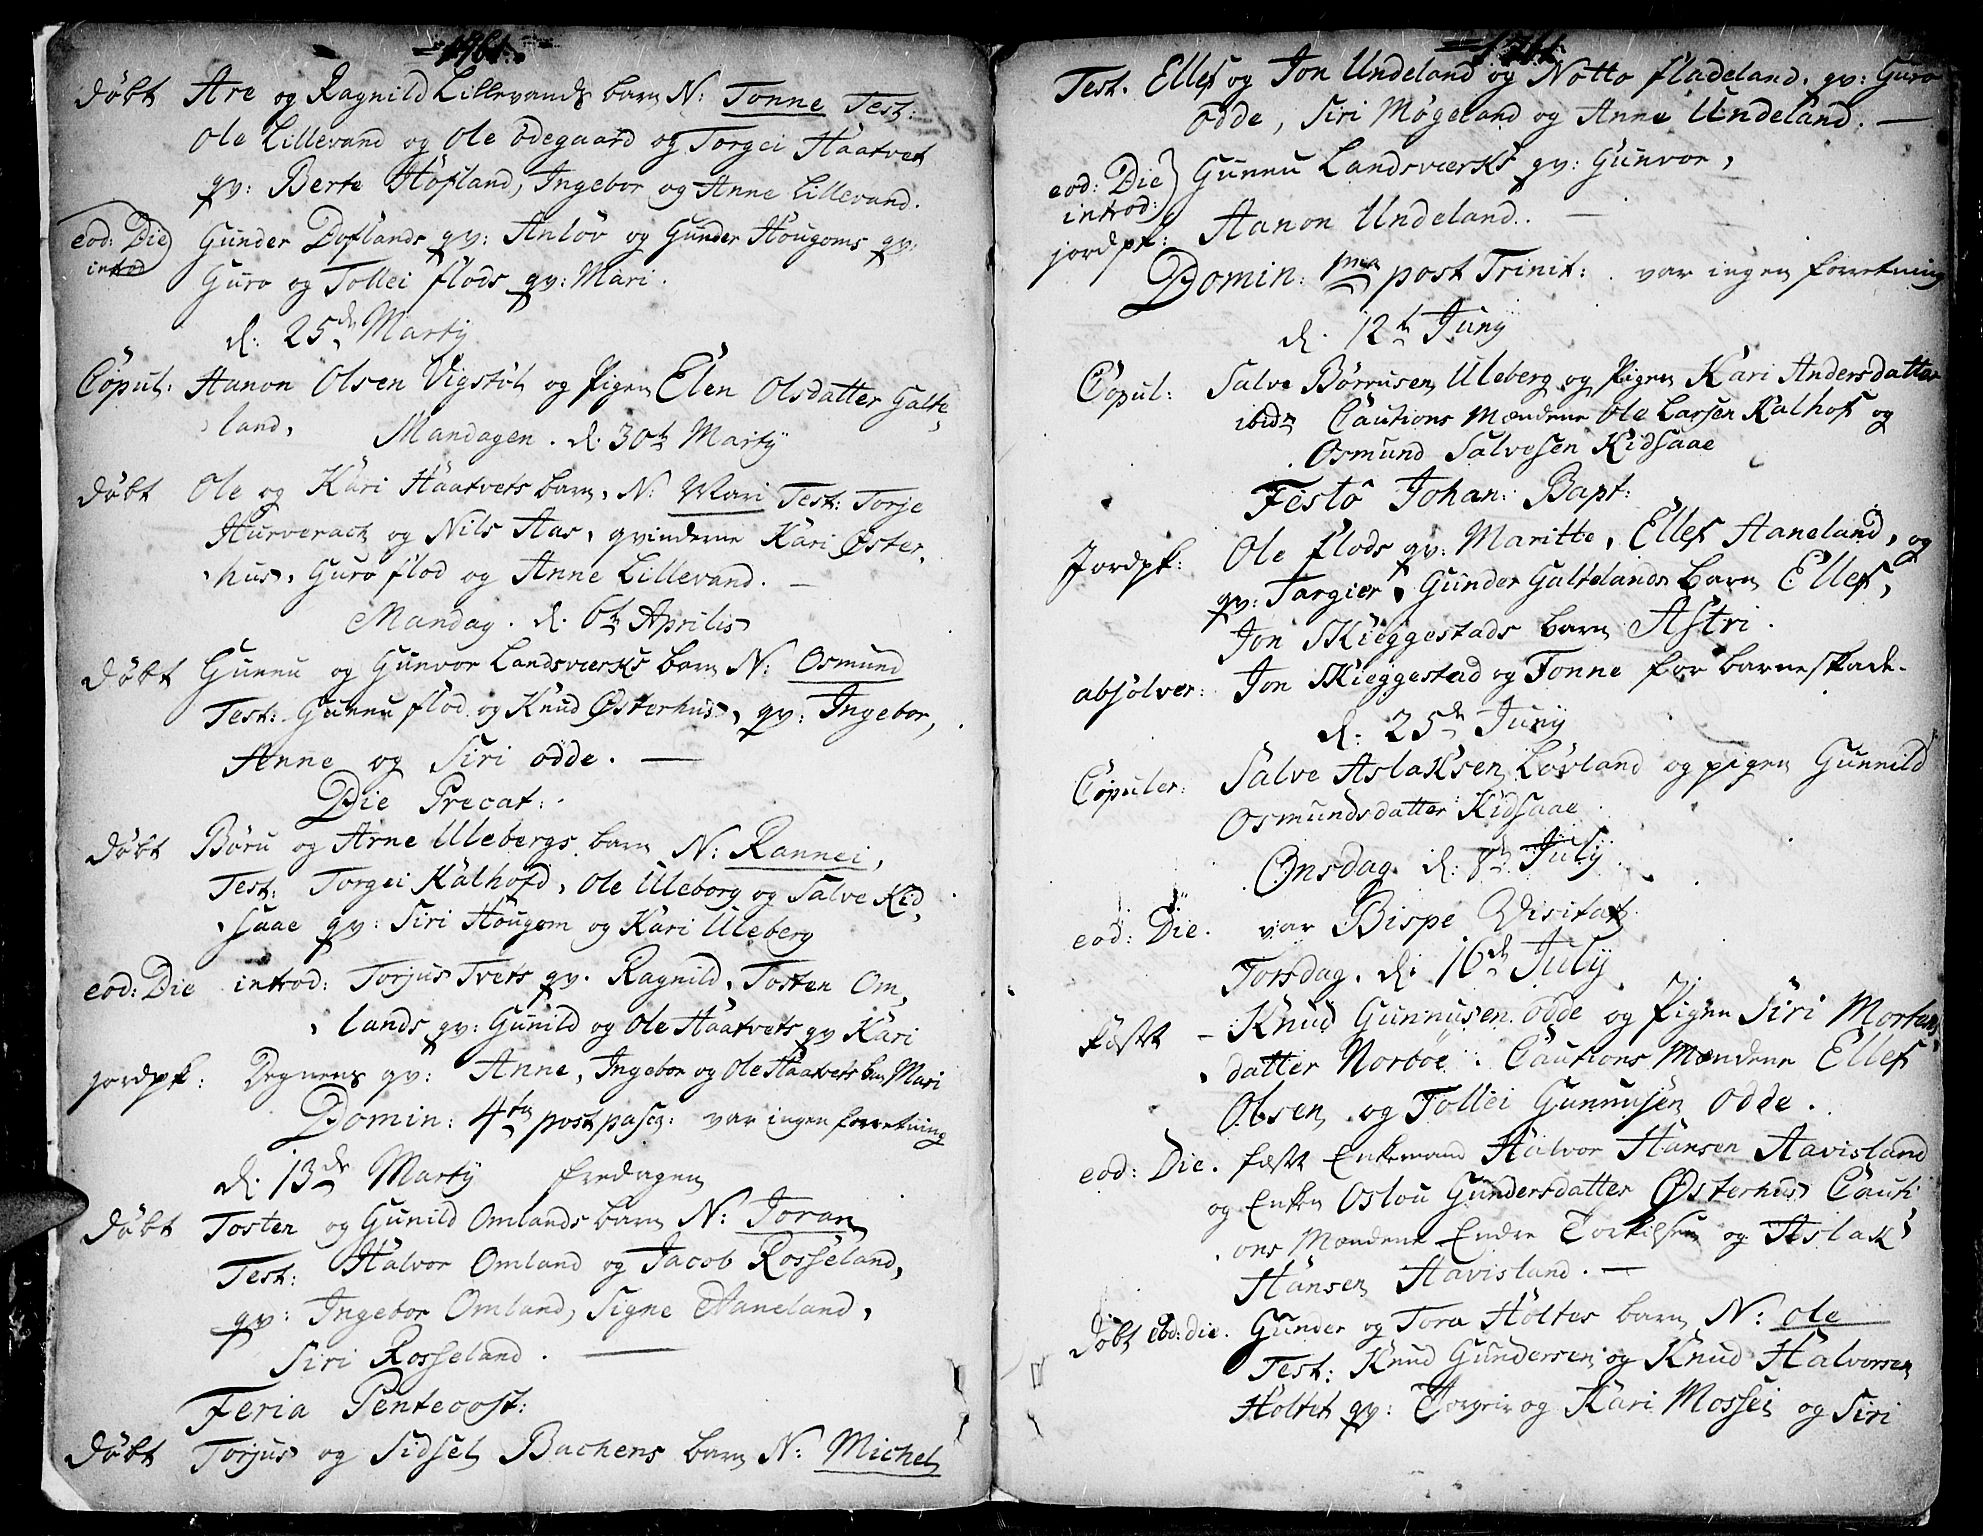 =1761.=
Døbt Are og Ragnild Lillevands barn N: Tonne Test:
Ole Lillevand og Ole Ødegaard og Torgei Haatvet
qv: Berte Høfland, Ingebor og Anne Lillevand.
eod: Die Gunder Doflands qv: Anlov og Gunder Hougoms qv:
introd Guro og Tollei flods qv: Mari.
d. 25de Martÿ
Copul: Aanon Olsen Vigstøl og Pigen Elen Olsdatter Galte,
land, Mandagen. d. 30te Martÿ
Døbt Ole og Kari Haatvets barn, N: Mari Test: Torje
Hurverack og Nils Aas, qvinderne Kari Øster,
hus, Guro flod og Anne Lillevand. —
Mandag. d. 6te Aprilis
Døbt Gunnu og Gunvor Landsværks barn N: Osmund
Test: Gunnu flod og Knud Østerhus, qv: Ingebor,
Anne og Siri Odde. —
Die Precat:
Døbt Børu og Arne Ulebergs barn N: Rannei,
Test: Torgei Kalhofd, Ole Uleberg og Salve Kid,
saae qv: Siri Hougom og Kari Uleberg
eod: Die introd: Torjus Tvets qv. Ragnild, Tosten Om,
lands qv: Gunild og Ole Haatvets qv Kari
jordpk: Degnens qv: Anne, Ingebor og Ole Haatvets bn Mari
Domin: 4ta post pasc: var ingen forretning
d. 13de Martÿ fredagen
Døbt Tosten og Gunild Omlands barn N: Joran
Test: Halvor Omland og Jacob Rosseland,
qv: Ingebor Omland, Signe Haneland,
Siri Rosseland. —
Feria Pentecost:
Døbt Torjus og Sidsel Bachens barn N: Michel
=1761.
Test. Ellef og Jon Undeland og Notto fladeland. qv: Guro
Odde, Siri Møgeland og Anne Undeland. —
eod: Die Gunnu Landsværks qv: Gunvor,
introd:
jordpk: Aanon Undeland. —
Domin: 1ma post Trinit: var ingen forretning
d. 12te Junÿ
Copul: Salve Børrusen Uleberg og Pigen Kari Andersdatter
ibidm Cautions Mændene Ole Larsen Kalhof og
Osmund Salvesen Kidsaae
Festô Johan: Bapt:
Jordpk: Ole flods qv: Maritte, Ellef Haneland, og
qv: Targier, Gunder Galtelands barn Ellef,
Jon Skieggestads barn Astri.
absolver: Jon Skieggestad og Tonne for barneskade.
d. 25de Junÿ
Copuler: Salve Aslaksen Løvland og pigen Gunnild
Osmundsdatter Kidsaae
Onsdag. d. 8de Julÿ.
eod: Die. var Bispe Visitatz.
Torsdag. d. 16de Julÿ
fæstet – Knud Gunnusen Odde og Pigen Siri Mortens
datter Norbøe. Cautions Mændene Ellef
Olsen og Tollei Gunnusen Odde.
eod: Die. fæstet Enkemand Halvor Hansen Aavisland
og Enken Oslou Gundersdatter Østerhus Cauti
ons Mændene Endre Torkilsen og Aslak
Hansen Aavisland. —
Døbt eod: die. Gunder og Tora Holtes barn N: Ole
Test: Knud Gundersen og Knud Halvorsen
Holtet qv: Torgrir og Kari Mossei og Siri